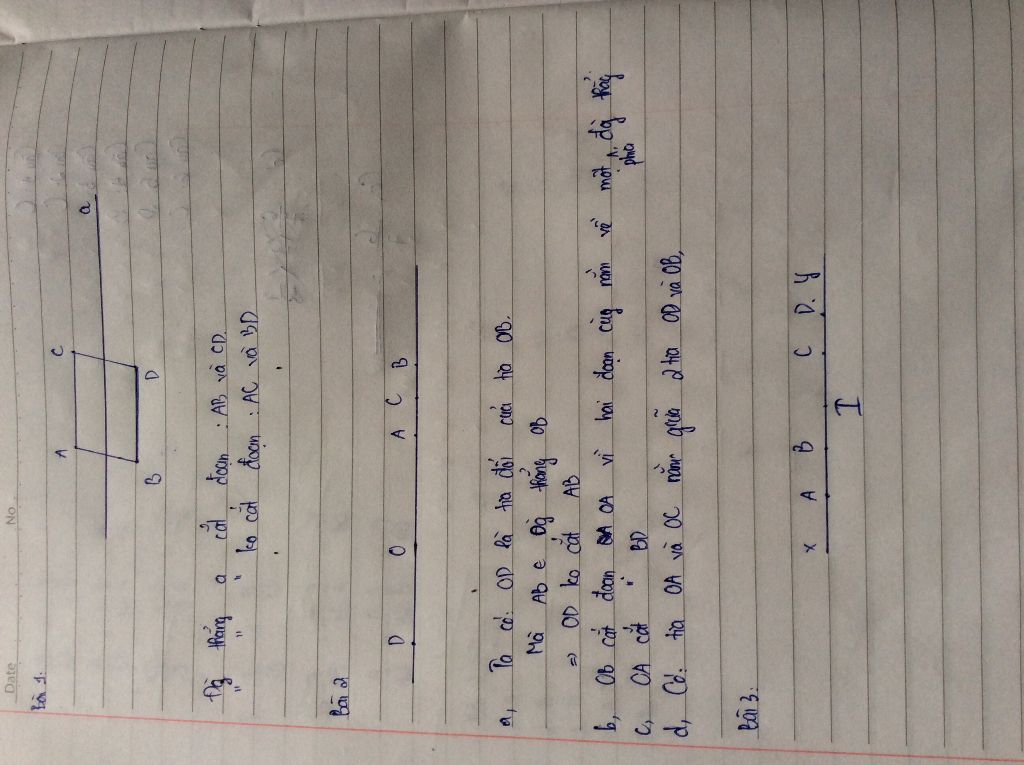 Date No.
Bài 1:
A C a
B D
Đg thẳng a cắt đoạn : AB và CD.
" " " ko cắt đoạn : AC và BD
Bài 2
D O A C B
a, Ta có: OD là tia đối của tia OB.
Mà AB e Đg thẳng OB
=> OD ko cắt AB
b, OB cắt đoạn OA vì hai đoạn cùg nằm về một phía đg thẳg
c, OA cắt " BD
d, Có: tia OA và OC nằm giữa 2 tia OD và OB,
Bài 3:
x A B C D. y
I